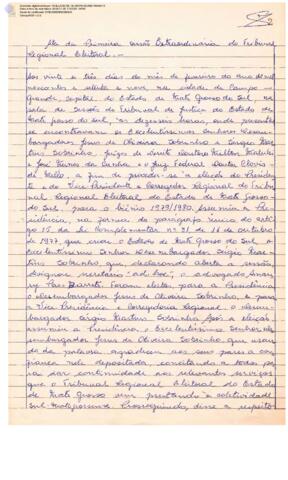 Ata da Primeira sessão Extraordinária do Tribunal
Regional Eleitoral.
Aos vinte e três dias do mês de fevereiro do ano de mil
novecentos e setenta e nove, na cidade de Campo
Grande, capital do Estado de Mato Grosso do Sul, na
sala de sessões do Tribunal de Justiça do Estado de
Mato Grosso do Sul, às dezesseis horas, onde presentes
se encontravam os Excelentíssimos Senhores Desem-
bargadores Jesus de Oliveira Sobrinho e Sérgio Mar-
tins Sobrinho, Juízes de Direito
e José Nunes da Cunha e o Juiz Federal Doutor Clovis de
Mello, a fim de proceder-se a eleição do Presidente
e do Vice Presidente e Corregedor Regional do Tribu-
nal Regional Eleitoral do Estado de Mato Grosso
do Sul para o biênio 1979/1980. Assumiu a Pre-
sidência, na forma do parágrafo único do artigo
15 da Lei Complementar nº 31 de 16 de outubro
de 1977, que criou o Estado de Mato Grosso do Sul, o
Excelentíssimo Senhor Desembargador Sérgio Mar-
tins Sobrinho que, declarando aberta a sessão
designou secretário "ad hoc", o advogado
Foram eleitos para a Presidência
o Desembargador Jesus de Oliveira Sobrinho e para
a Vice Presidência e Corregedoria Regional, o desem-
bargador Sérgio Martins Sobrinho. Após a eleição
assumiu a Presidência, o Excelentíssimo Senhor De-
sembargador Jesus de Oliveira Sobrinho que usan-
do da palavra, agradeceu aos seus pares a con-
fiança nele depositada, concitando a todos pa-
ra dar continuidade aos relevantes serviços
que o Tribunal Regional Eleitoral do Estado
de Mato Grosso vem prestando à coletividade
Sul-Matogrossense. Prosseguindo, disse a respeito